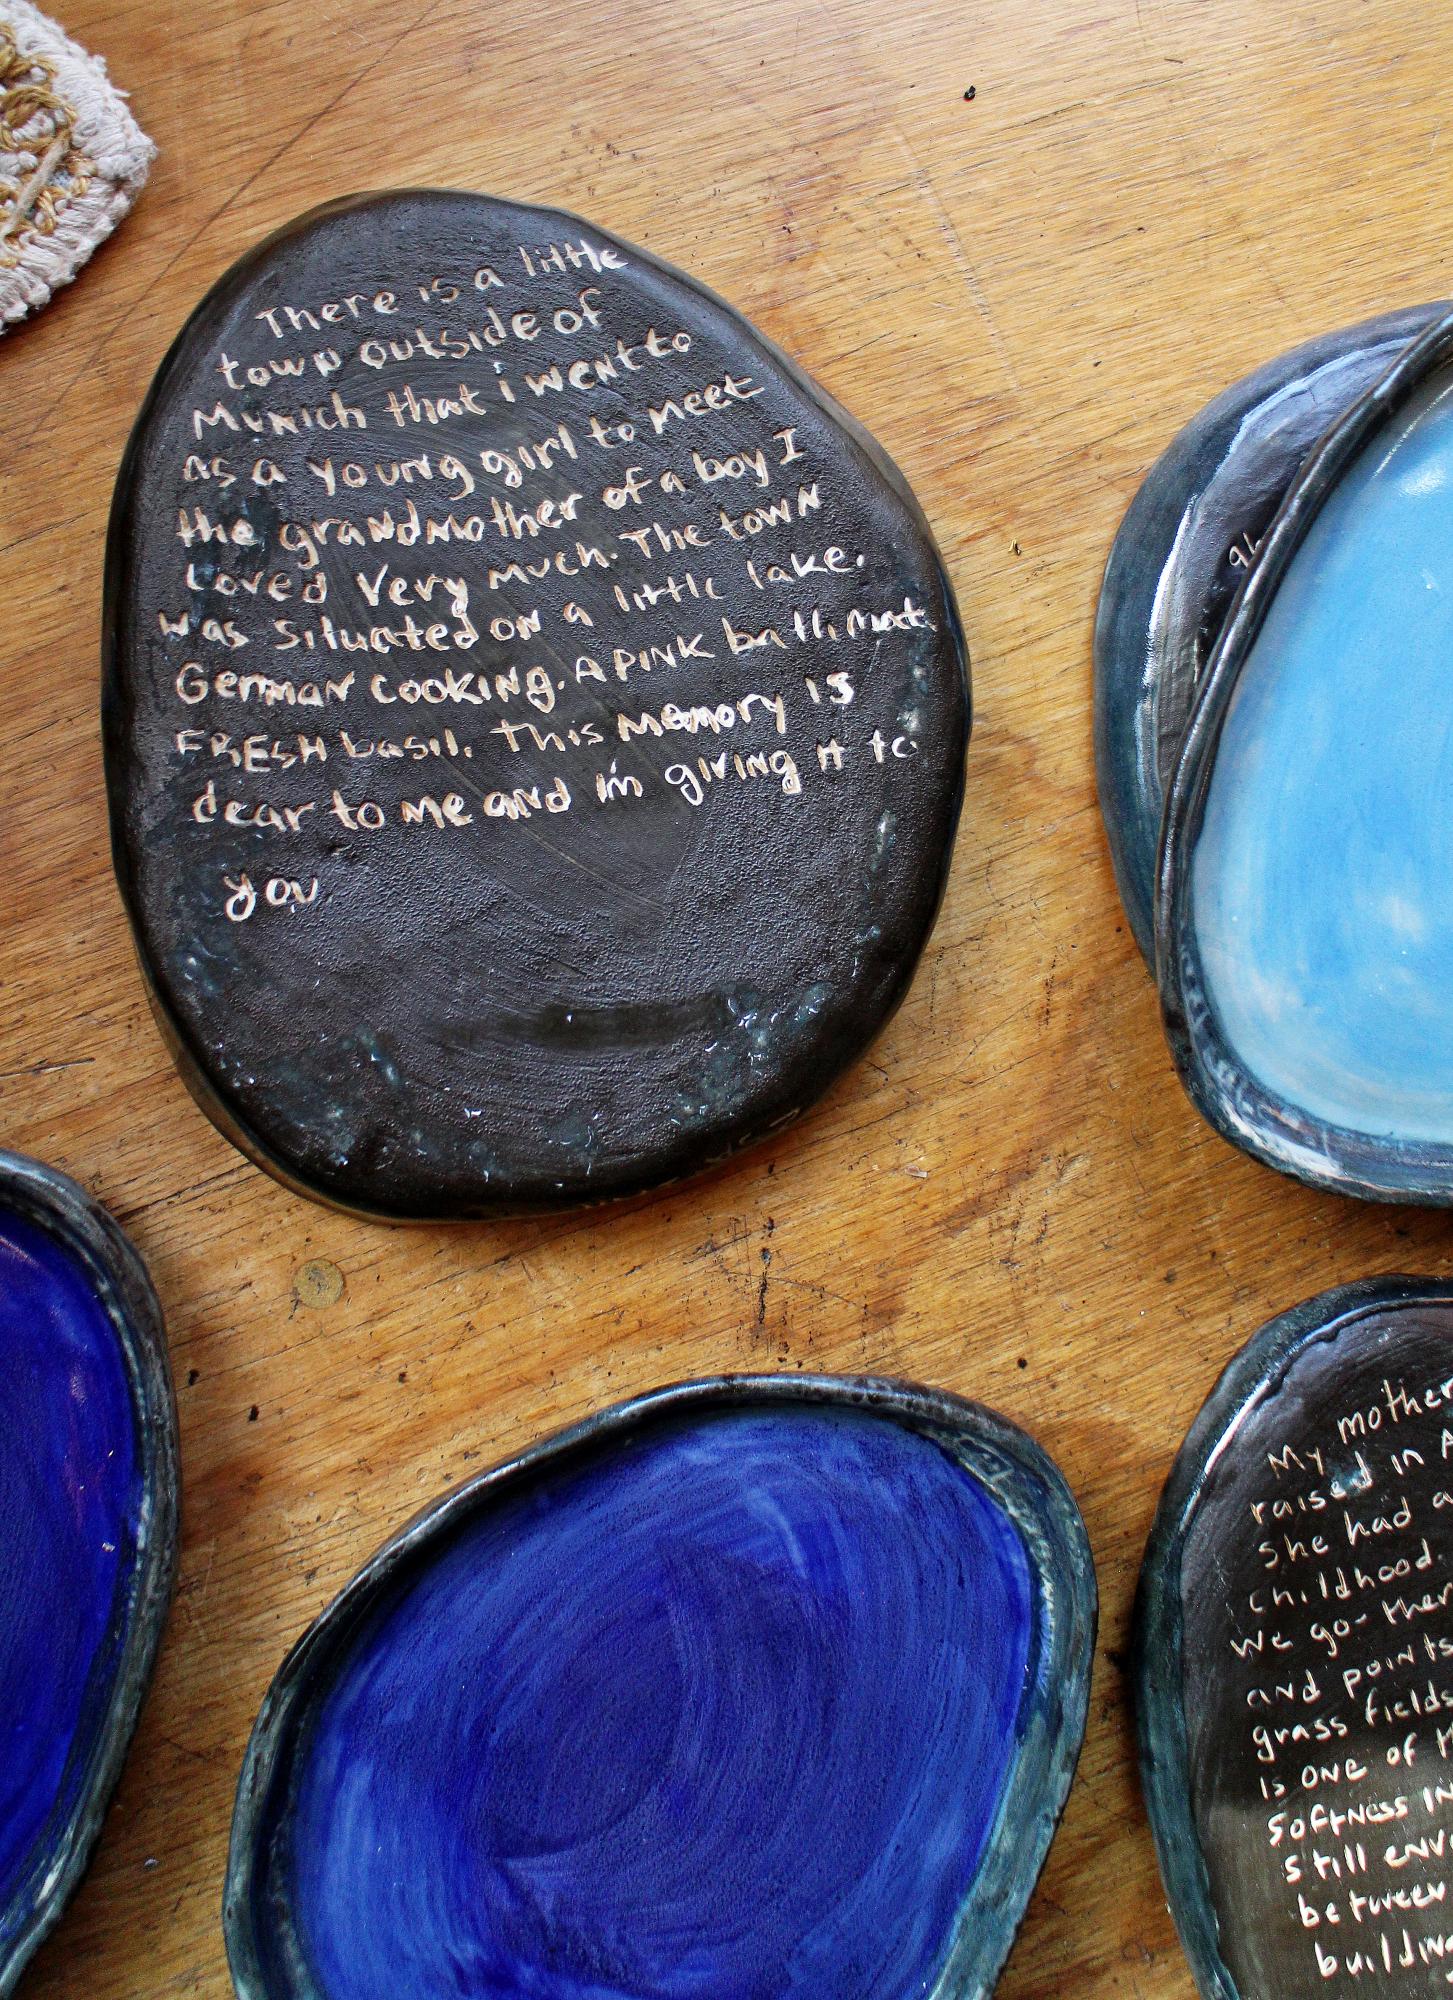 There is a little
town outside of
Munich that i went to
as a young girl to meet
the grandmother of a boy I
Loved Very much. The town
was situated on a little lake.
German cooking. A PINK ball, mat.
FRESH basil. This memory is
dear to me and i'm giving it to
you.
My mother
raised in
she had
childhood.
We go
and points
grass fields
is one of
softness
still
between